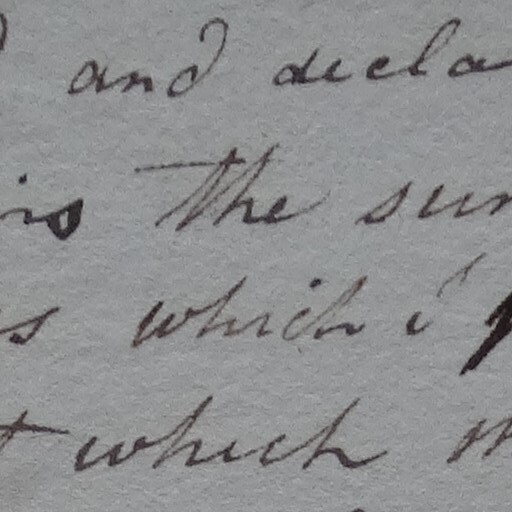 and decla
is the sum
s which i
t which